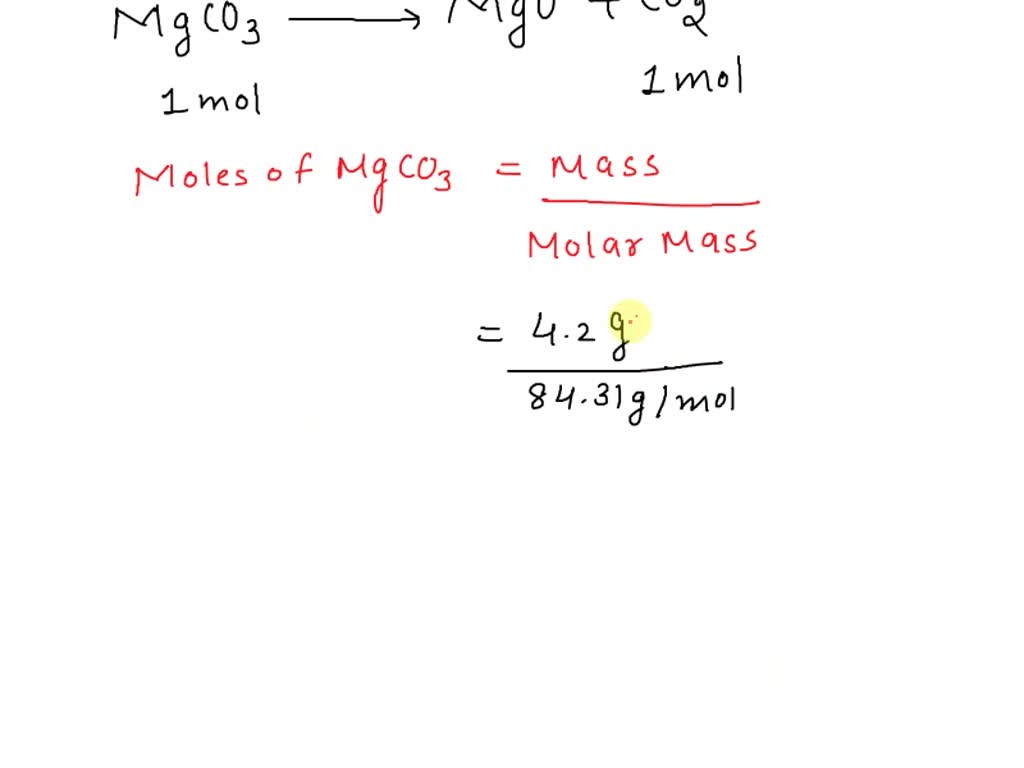 MgCO3 → MgO + CO2
1 mol 1 mol
Moles of MgCO3 = Mass
Molar Mass
= 4.2 g
84.31g/mol